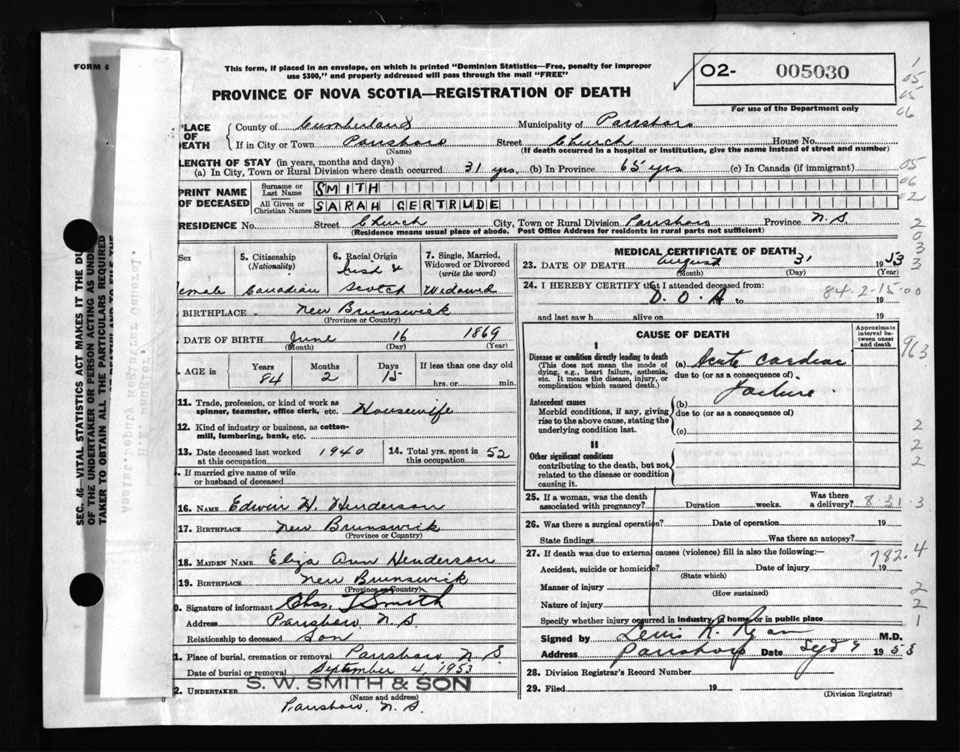 FORM 6
This form, if placed in an envelope, on which is printed "Dominion Statistics—Free, penalty for improper
use $300," and properly addressed will pass through the mail "FREE"
PROVINCE OF NOVA SCOTIA—REGISTRATION OF DEATH
02- 005030
For use of the Department only
1
05
05
06
PLACE OF DEATH
County of Cumberland Municipality of Parrsboro
If in City or Town Parrsboro Street Church House No.
(Name) (If death occurred in a hospital or institution, give the name instead of street and number)
LENGTH OF STAY (in years, months and days)
(a) In City, Town or Rural Division where death occurred 31 yrs. (b) In Province 65 yrs (c) In Canada (if immigrant)
05
06
02
PRINT NAME OF DECEASED
Surname or Last Name SMITH
All Given or Christian Names SARAH GERTRUDE
RESIDENCE No. Street Church City, Town or Rural Division Parrsboro Province N.S
(Residence means usual place of abode. Post Office Address for residents in rural parts not sufficient)
2
0
3
3
Sex
emale
5. Citizenship (Nationality)
Canadian
6. Racial Origin
Irish &
Scotch
7. Single, Married, Widowed or Divorced (write the word)
Widowed
BIRTHPLACE New Brunswick
(Province or Country)
DATE OF BIRTH June 16 1869
(Month) (Day) (Year)
AGE in Years Months Days If less than one day old
84 2 15 hrs. or min.
11. Trade, profession, or kind of work as
spinner, teamster, office clerk, etc. Housewife
12. Kind of industry or business, as cotton-
mill, lumbering, bank, etc.
13. Date deceased last worked at this occupation 1940
14. Total yrs. spent in this occupation 52
If married give name of wife
or husband of deceased
16. NAME Edwin H. Henderson
17. BIRTHPLACE New Brunswick
(Province or Country)
18. MAIDEN NAME Eliza Ann Henderson
19. BIRTHPLACE New Brunswick
(Province or Country)
0. Signature of informant Chas. Smith
Address Parrsboro N.S.
Relationship to deceased Son
1. Place of burial, cremation or removal Parrsboro N S
Date of burial or removal September 4, 1953
2. UNDERTAKER S. W. SMITH & SON
(Name and address)
Parrsboro. N.S.
MEDICAL CERTIFICATE OF DEATH
23. DATE OF DEATH August 31 1953
(Month) (Day) (Year)
24. I HEREBY CERTIFY that I attended deceased from:
D.O.A to 19
84-2-15-00
and last saw h alive on 19
CAUSE OF DEATH
Approximate interval between onset and death
963
I
Disease or condition directly leading to death
(This does not mean the mode of
dying, e.g., heart failure, asthenia,
etc. It means the disease, injury, or
complication which caused death.)
(a) Acute Cardiac
due to (or as a consequence of)
Failure.
Antecedent causes
Morbid conditions, if any, giving
rise to the above cause, stating the
underlying condition last.
(b)
due to (or as a consequence of)
(c)
II
Other significant conditions
contributing to the death, but not
related to the disease or condition
causing it.
2
2
2
25. If a woman, was the death associated with pregnancy? Duration weeks. Was there a delivery?
8-31-3
26. Was there a surgical operation? Date of operation 19
State findings Was there an autopsy?
27. If death was due to external causes (violence) fill in also the following:—
Accident, suicide or homicide? Date of injury 19
(State which)
782.4
Manner of injury
(How sustained)
Nature of injury
Specify whether injury occurred in industry, in home, or in public place
2
2
1
Signed by Lewis R. Ryan M.D.
Address Parrsboro Date 1953
28. Division Registrar's Record Number
29. Filed 19
(Division Registrar)
SEC. 46—VITAL STATISTICS ACT MAKES IT THE DU
OF THE UNDERTAKER OR PERSON ACTING AS UNDE
TAKER TO OBTAIN ALL THE PARTICULARS REQUIRED
Deputy Registrar General.